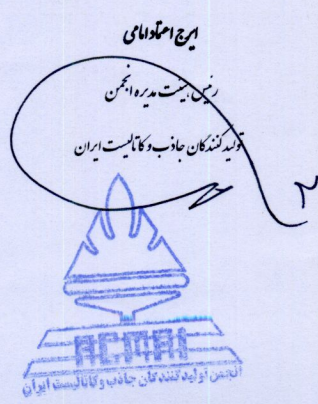 ایرج اعتماد امامی
رئیس هیئت مدیره انجمن
تولیدکنندگان جاذب و کاتالیست ایران
ACMAI
انجمن تولیدکنندگان جاذب و کاتالیست ایران